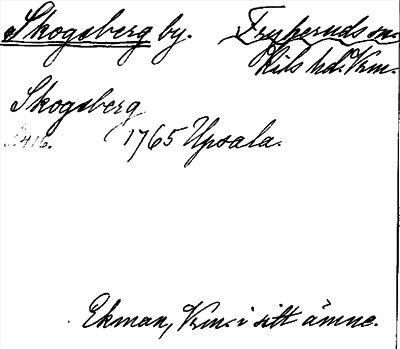 Skogsberg by. Frykeruds sn.
Kils hd. Vrm.
Skogsberg
1765 Upsala.
Ekman, Vrm. i sitt ämne.